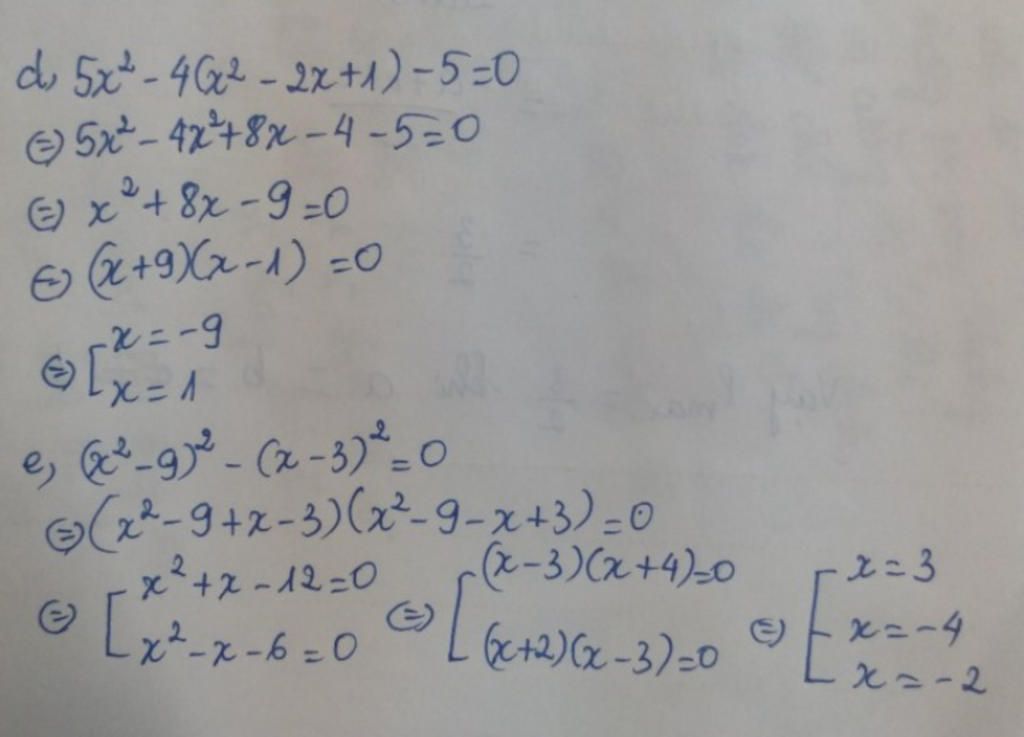 d, 5x² - 4(x² - 2x + 1) - 5 = 0
⇔ 5x² - 4x² + 8x - 4 - 5 = 0
⇔ x² + 8x - 9 = 0
⇔ (x+9)(x-1) = 0
⇔ [ x = -9
x = 1
e, (x² - 9)² - (x - 3)² = 0
⇔ (x² - 9 + x - 3)(x² - 9 - x + 3) = 0
⇔ [ x² + x - 12 = 0 ⇔ [ (x-3)(x+4) = 0 ⇔ [ x = 3
x² - x - 6 = 0 (x+2)(x-3) = 0 x = -4
x = -2